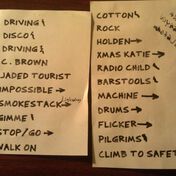 DRIVING
DISCO
DRIVING
C. BROWN
JADED TOURIST
IMPOSSIBLE →
SMOKESTACK →
GIMME
STOP/GO →
WALK ON
COTTON
ROCK
HOLDEN →
XMAS KATIE →
RADIO CHILD
BARSTOOLS
MACHINE →
DRUMS →
FLICKER →
PILGRIMS
CLIMB TO SAFETY